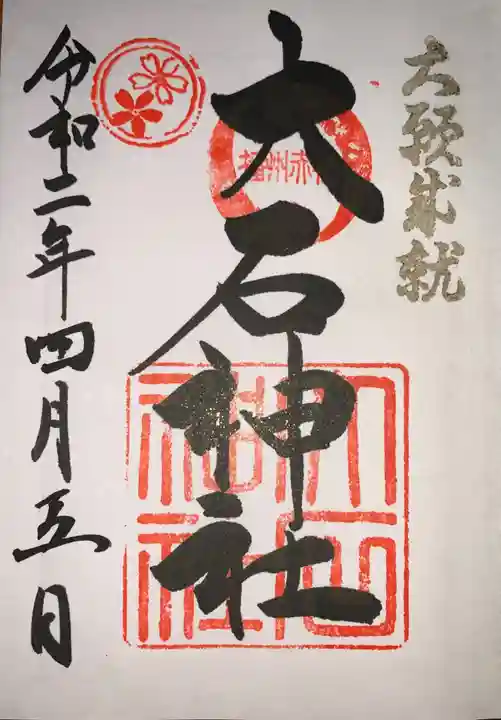 大願成就
播州赤
大石神社
大石神社
令和二年四月五日